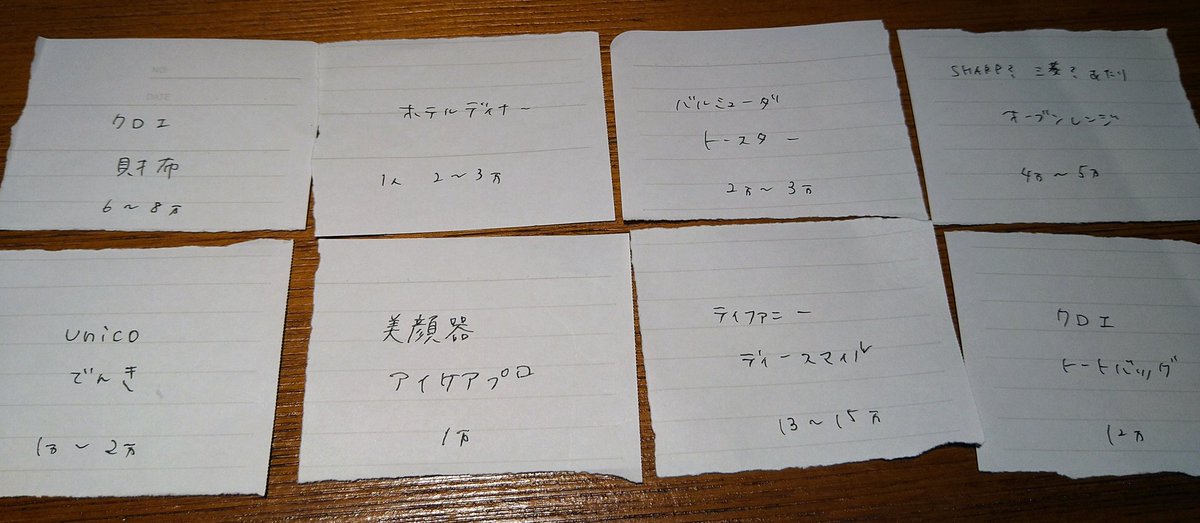 クロエ
財布
6～8万
ホテルディナー
1人 2～3万
バルミューダ
トースター
2万～3万
SHARP? 三菱? あたり
オーブンレンジ
4万～5万
unico
でんき
1万～2万
美顔器
アイケアプロ
1万
ティファニー
ディースマイル
13～15万
クロエ
トートバッグ
12万